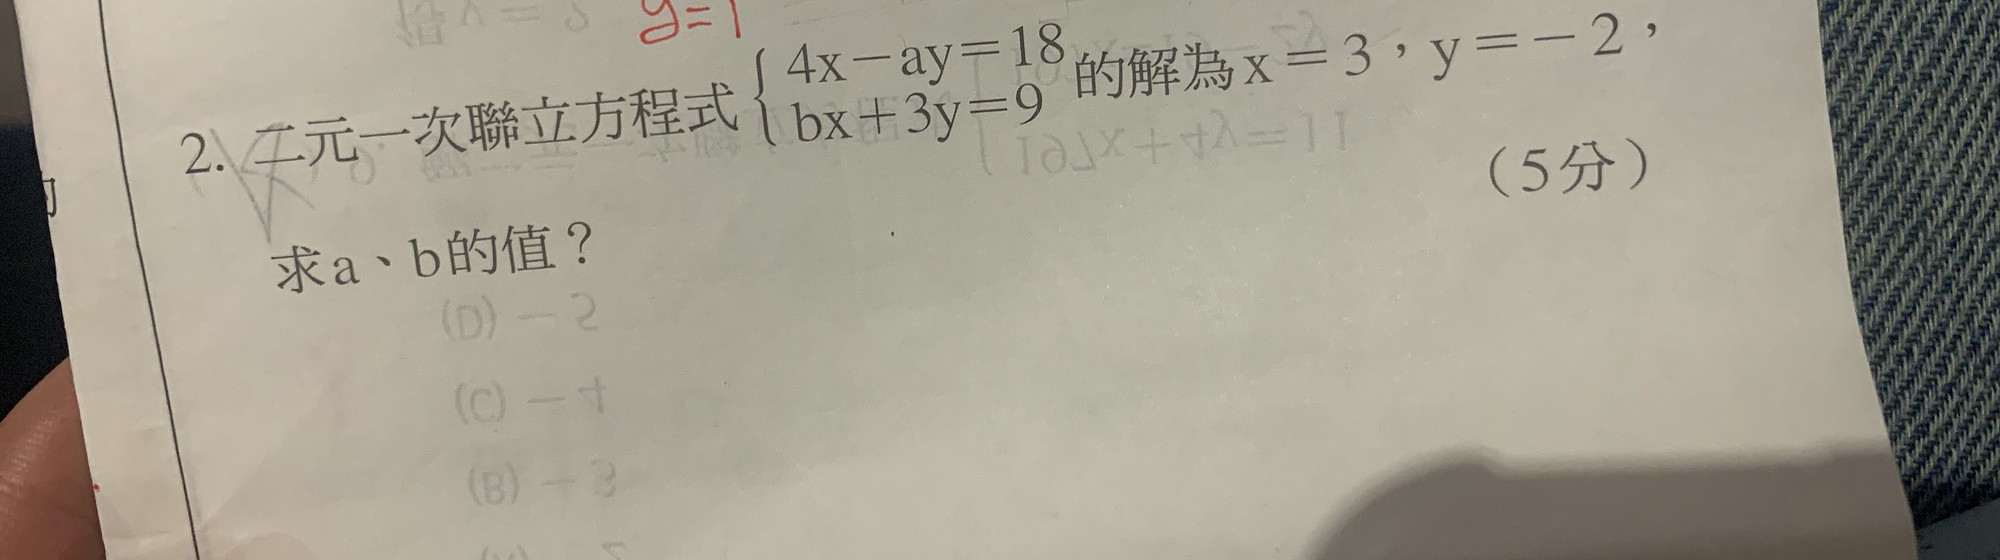 y=1
2. 二元一次聯立方程式{4x-ay=18的解為x=3,y=-2,
bx+3y=9
(5分)
求a、b的值?